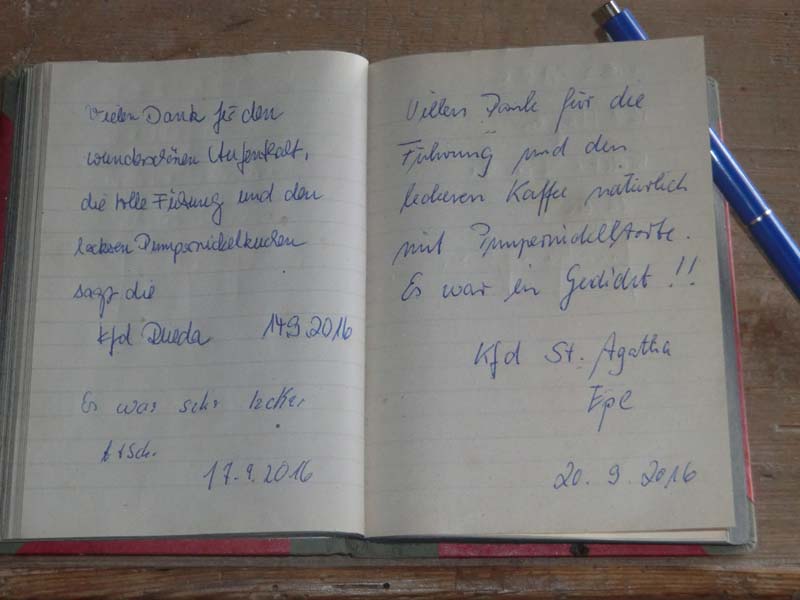 Vielen Dank für den
wunderschönen Aufenthalt,
die tolle Führung und den
leckeren Pumpernickelkuchen
sagt die
Kfd
14.9.2016
Es war sehr lecker
17.9.2016
Vielen Dank für die
Führung und den
leckeren Kaffee natürlich
mit Pumpernickeltorte.
Es war ein Gedicht!!
Kfd St. Agatha
Epe
20. 9. 2016